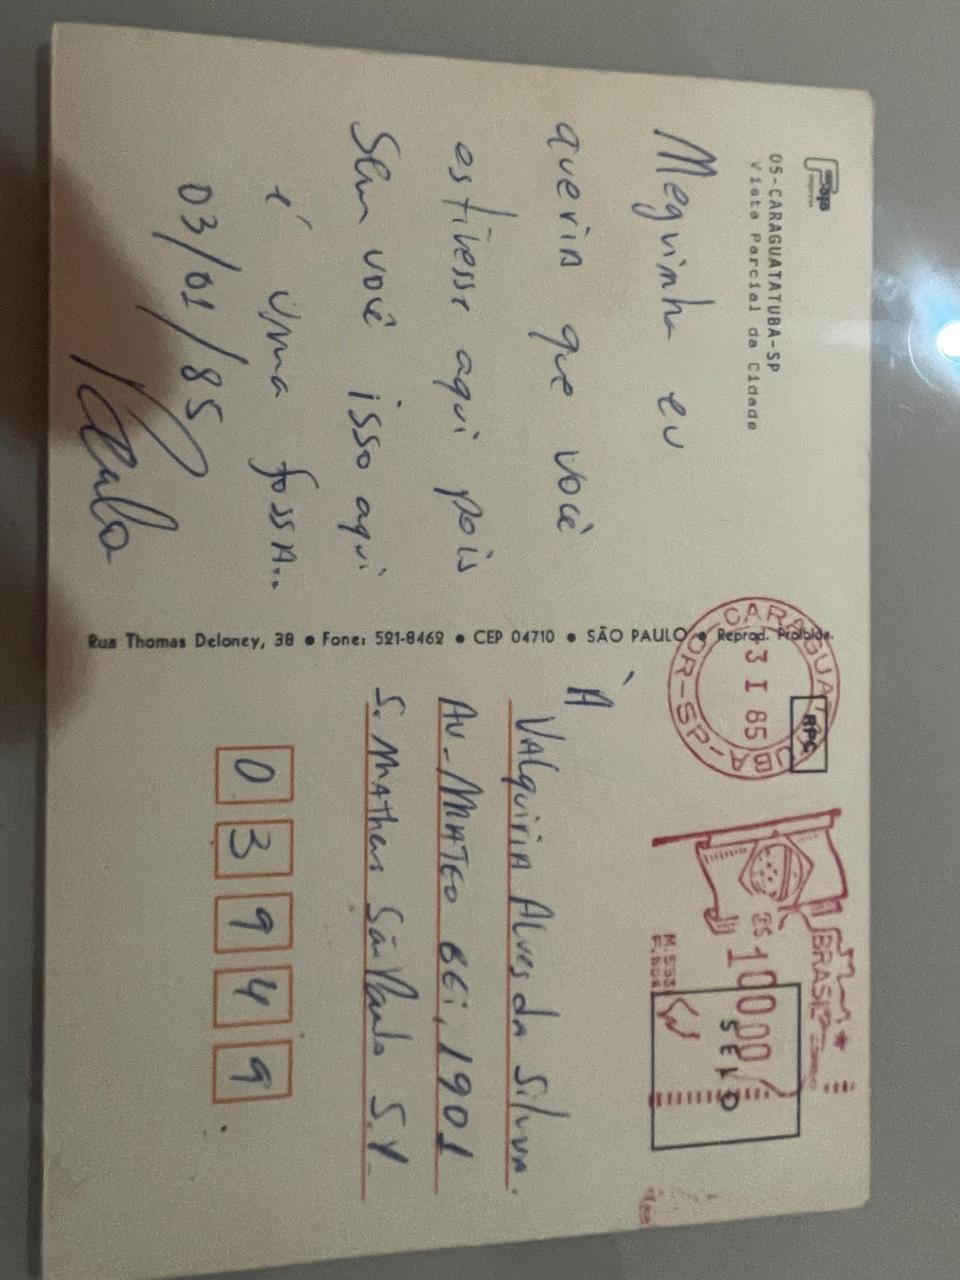 Foto
05-CARAGUATATUBA-SP
Vista Parcial da Cidade
Meguinha eu
queria que você
estivesse aqui pois
Sem você isso aqui
é uma fossa..
03/01/85
Paulo
Rua Thomas Deloney, 38 ● Fone: 521-8462 ● CEP 04710 ● SÃO PAULO ● Reprod. Proibida.
CARAGUATATUBA
DR-SP
3 I 85
RPC
BRASIL
100,00
SELO
À
Valquiria Alves da Silvva.
Av-Mateo Bei, 1901
S. Matheus São Paulo S.P.
03949